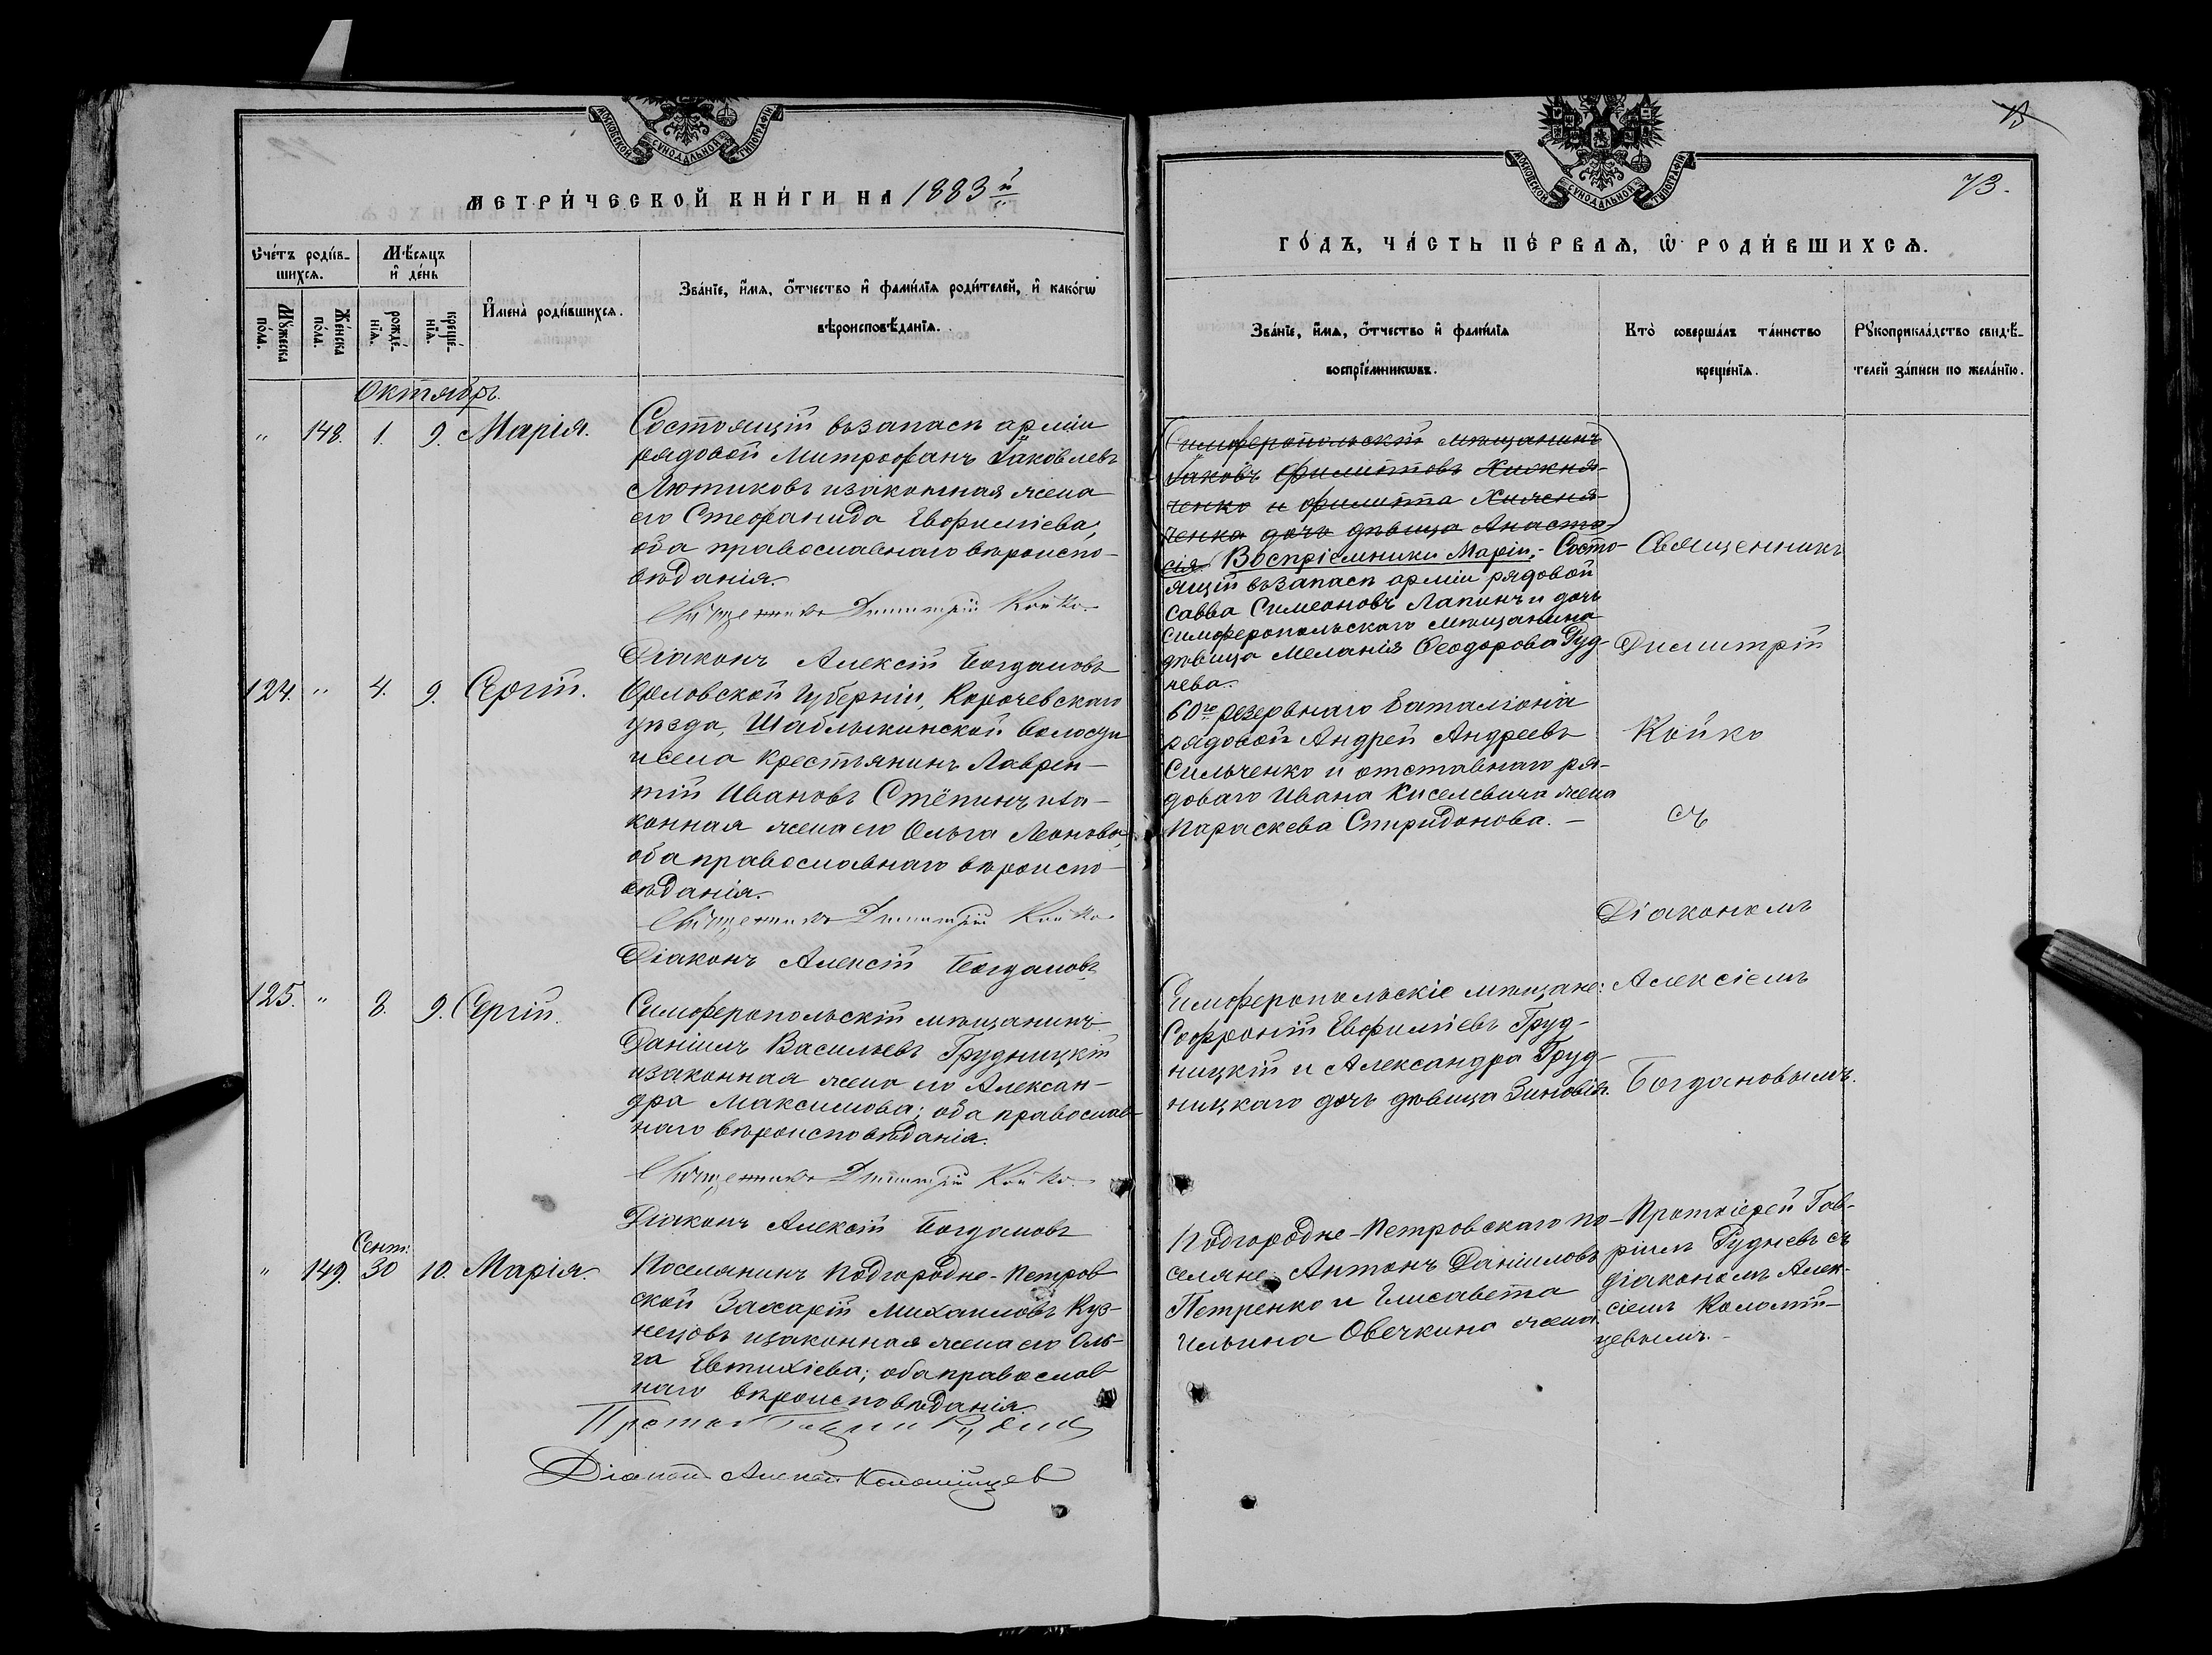 МОСКОВСКОЙ СѴНОДАЛЬНОЙ ТИПОГРАФІИ
МЕТРИ́ЧЕСКОЙ КНИ́ГИ НА 1883й
Счётъ роди́в-
шихся.
Мѣ́сяцъ
и҆ де́нь
Мꙋ́жеска
по́ла.
Же́нска
по́ла.
рожде́-
нїя.
креще́-
нїя.
И҆мена̀ роди́вшихся.
Зва́нїе, и҆́мя, ѻ҆́тчество и҆ фами́лїя роди́телей, и҆ како́гѡ
вѣроисповѣ́данїя.
Октябрь.
" 148. 1. 9. Марія.
Состоящій въ запасѣ арміи
рядовой Митрофанъ Іаковлевъ
Лютиковъ и законная жена
его Стефанида Евфиміева;
оба православнаго вѣроиспо-
вѣданія.
Священникъ Димитрій Койко
Діаконъ Алексій Богдановъ
124. " 4. 9. Сергій.
Орловской Губерніи, Карачевскаго
уѣзда, Шаблыкинской волости
и села крестьянинъ Лаврен-
тій Ивановъ Стёпинъ и за-
конная жена его Ольга Леонова,
оба православнаго вѣроиспо-
вѣданія.
Священникъ Димитрій Койко
Діаконъ Алексій Богдановъ
125. " 8. 9. Сергій.
Симферопольскій мѣщанинъ
Даніилъ Васильевъ Грудницкій
и законная жена его Алексан-
дра Максимова; оба православ-
наго вѣроисповѣданія.
Священникъ Димитрій Койко
Діаконъ Алексій Богдановъ
Сент:
" 149. 30 10. Марія.
Поселянинъ Подгородне-Петров
ской Захарій Михаиловъ Куз-
нецовъ и законная жена его Оль-
га Евтихіева; оба православ
наго вѣроисповѣданія.
Діаконъ Алексій Коломійцев
73.
МОСКОВСКОЙ СѴНОДАЛЬНОЙ ТИПОГРАФІИ
ГО́ДЪ, ЧА́СТЬ ПЕ́РВАЯ, Ѡ҆ РОДИ́ВШИХСЯ.
Зва́нїе, и҆́мя, ѻ҆́тчество и҆ фами́лїя
воспрїе́мникѡвъ.
Кто̀ соверша́лъ та́инство
креще́нїя.
Рꙋкоприкла́дство свидѣ́-
телей за́писи по жела́нїю.
Симферопольскій мѣщанинъ
Іаковъ Филипповъ Хижня-
ченко и Филиппа Хижня-
ченка дочь дѣвица Анаста-
сія. Воспріемники Маріи: Состо-
ящій въ запасѣ арміи рядовой
Савва Симеоновъ Лапинъ и дочь
Симферопольскаго мѣщанина
дѣвица Меланія Ѳеодорова Руд-
нева.
60го резервнаго баталіона
рядовой Андрей Андреевъ
Сильченко и отставнаго ря-
доваго Ивана Киселевича жена
Параскева Спиридонова. –
Симферопольскіе мѣщане:
Софроній Евфиміевъ Груд-
ницкій и Александра Груд-
ницкаго дочь дѣвица Зиновія.
Подгородне-Петровскаго по-
селяне: Антонъ Даніиловъ
Петренко и Елисавета
Ильина Овечкина жена.
Священникъ
Димитрій
Койко
съ
Діакономъ
Алексіемъ
Богдановымъ.
Протоіерей Гав-
ріилъ Рудневъ съ
діакономъ Алек-
сіемъ Коломій-
цевымъ. –